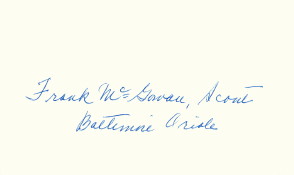 Frank McGowan, Scout
Baltimore Oriole